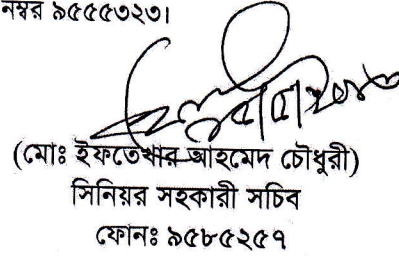 নম্বর ৯৫৫৫৩২৩।
(মোঃ ইফতেখার আহমেদ চৌধুরী)
সিনিয়র সহকারী সচিব
ফোনঃ ৯৫৮৫২৫৭